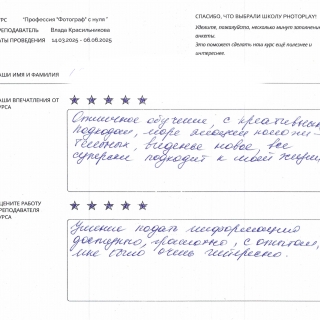 УРС "Профессия "Фотограф" с нуля"
РЕПОДАВАТЕЛЬ Влада Красильникова
АТЫ ПРОВЕДЕНИЯ 14.03.2025 - 06.06.2025
СПАСИБО, ЧТО ВЫБРАЛИ ШКОЛУ PHOTOPLAY!
Уделите, пожалуйста, несколько минут заполнению
анкеты.
Это поможет сделать наш курс ещё полезнее и
интереснее.
АШИ ИМЯ И ФАМИЛИЯ
АШИ ВПЕЧАТЛЕНИЯ ОТ
УРСА
Отличное обучение, с креативным
подходом, море эмоций
новое, все
суперски подходит к моей жизни
ЦЕНИТЕ РАБОТУ
РЕПОДАВАТЕЛЯ
УРСА
Умение подать информацию
доступно, грамотно, с опытом,
мне было очень интересно.